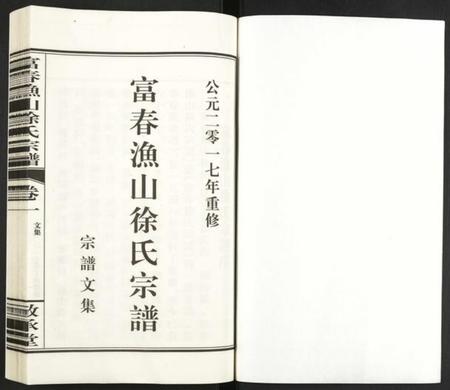 公元二零一七年重修
富春漁山徐氏宗譜
宗譜文集
富春漁山徐氏宗譜
卷一
文集
敦承堂